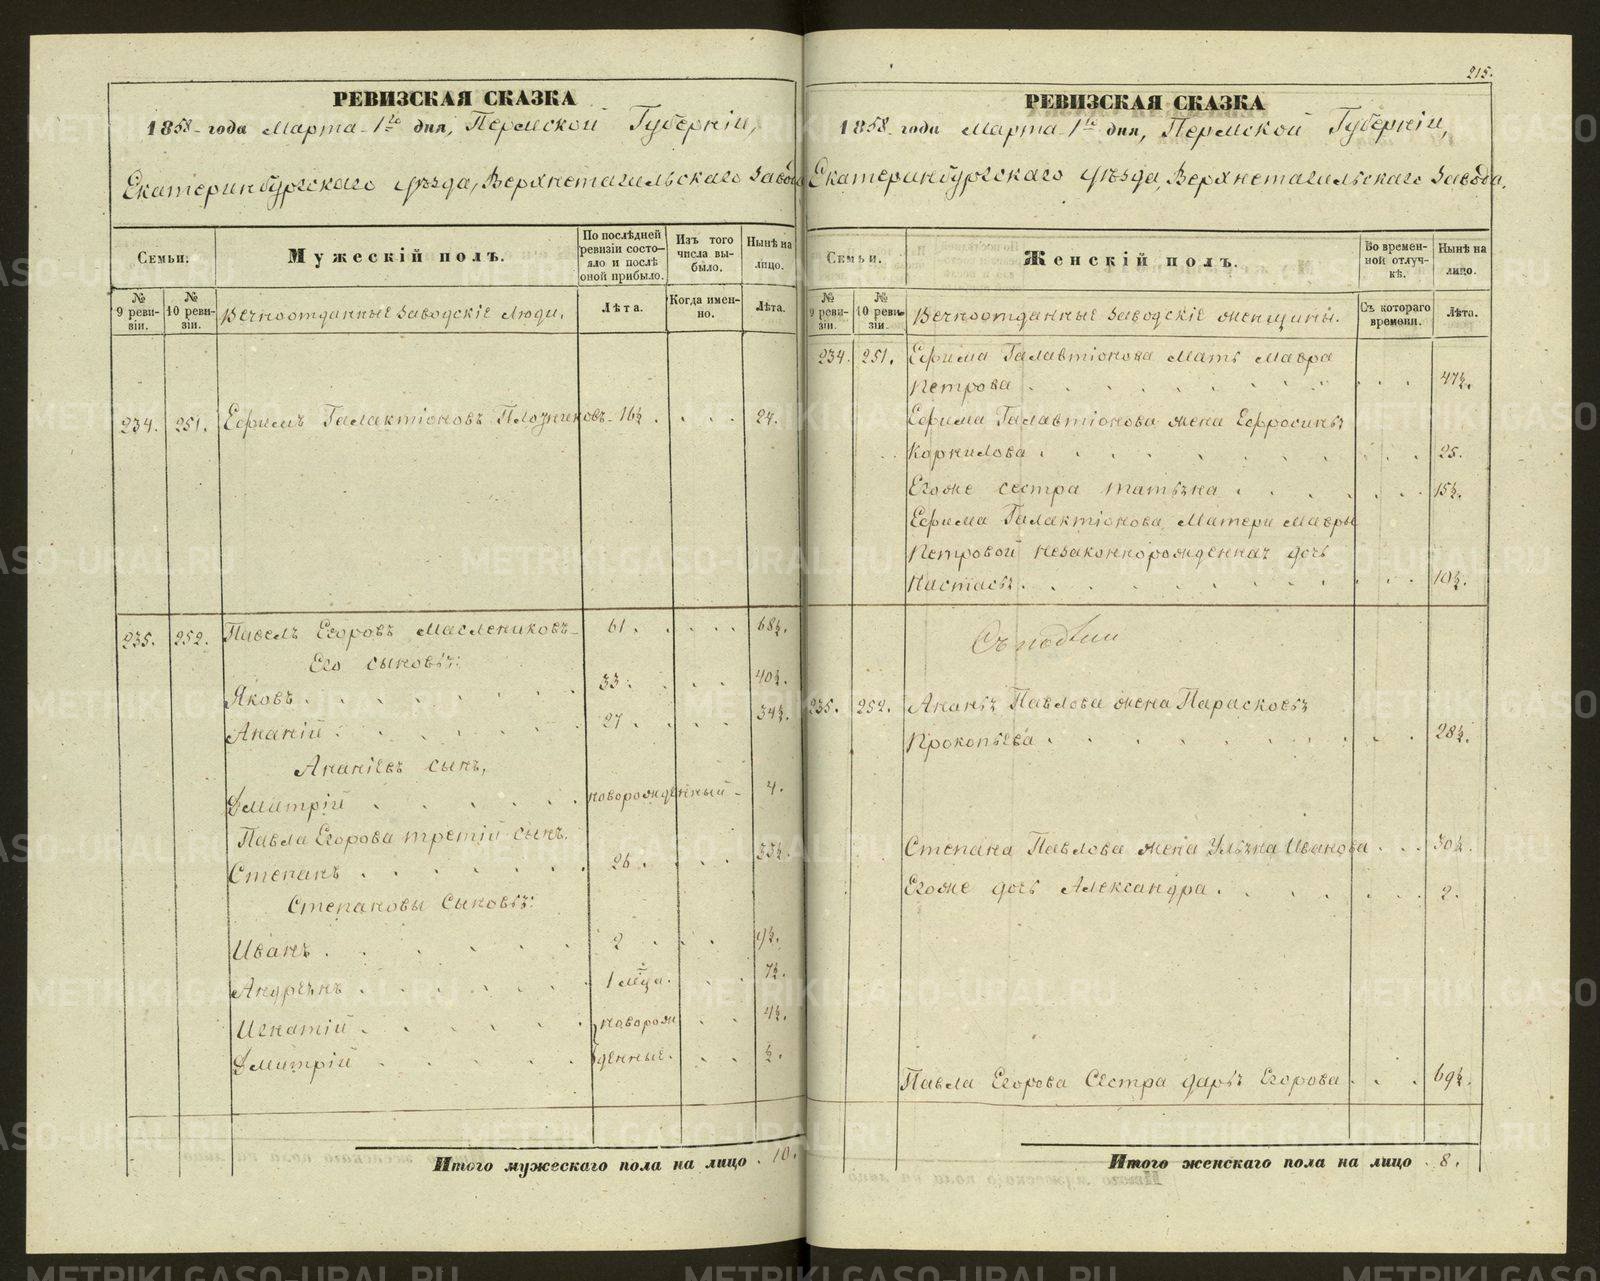 РЕВИЗСКАЯ СКАЗКА
1858 года Марта 1го дня, Пермской Губерніи,
Екатеринбургскаго уѣзда, Верхнетагильскаго Завода
Семьи.
Мужескій полъ.
По послѣдней ревизіи состояло и послѣ оной прибыло.
Изъ того числа выбыло.
Нынѣ на лицо.
№ 9 ревизіи.
№ 10 ревизіи.
Вечноотданные Заводскіе Люди.
Лѣта.
Когда именно.
Лѣта.
234. 251. Ефимъ Галактіоновъ Плотниковъ 16½ . . . . 24.
235. 252. Павелъ Егоровъ Маслениковъ 61 . . . . 68½.
Его сыновья:
Яковъ . . . . . . 33 . . . . 40½.
Ананій . . . . . . 27 . . . . 34½.
Ананіевъ сынъ,
Дмитрій . . . . . новорожденный 4.
Павла Егорова третій сынъ.
Степанъ . . . . . . . 26 . . . . 33½.
Степановы сыновья:
Иванъ . . . . . 2 . . . 9½.
Андреянъ . . . . . . 1 мѣца . . . 7½.
Игнатій . . . . . новорож . . 4½.
Дмитрій . . . . денные . . . ½.
Итого мужескаго пола на лицо . 10.
215.
РЕВИЗСКАЯ СКАЗКА
1858 года Марта 1го дня, Пермской Губерніи,
Екатеринбургскаго уѣзда, Верхнетагильскаго Завода.
Семьи.
Женскій полъ.
Во временной отлучкѣ.
Нынѣ на лицо.
№ 9 ревизіи.
№ 10 ревизіи.
Вечноотданные Заводскіе женщины.
Съ котораго времени.
Лѣта.
234. 251. Ефима Галактіонова Мать Мавра
Петрова . . . . . . . . . . . 47½.
Ефима Галактіонова жена Ефросинья
Корнилова . . . . . . . . . . 25.
Егоже сестра Татьяна . . . . . . . 15½.
Ефима Галактіонова Матери Мавры
Петровой незаконнорожденная дочь
Настасья . . . . . . . . . . 10½.
235. 252. Ананья Павлова жена Парасковья
Прокопьева . . . . . . . . . . 28½.
Степана Павлова жена Ульяна Иванова . . . 30½.
Егоже дочь Александра . . . . . . . 2.
Павла Егорова Сестра Дарья Егорова . . . 69½.
Итого женскаго пола на лицо . 8.
METRIKI.GASO-URAL.RU